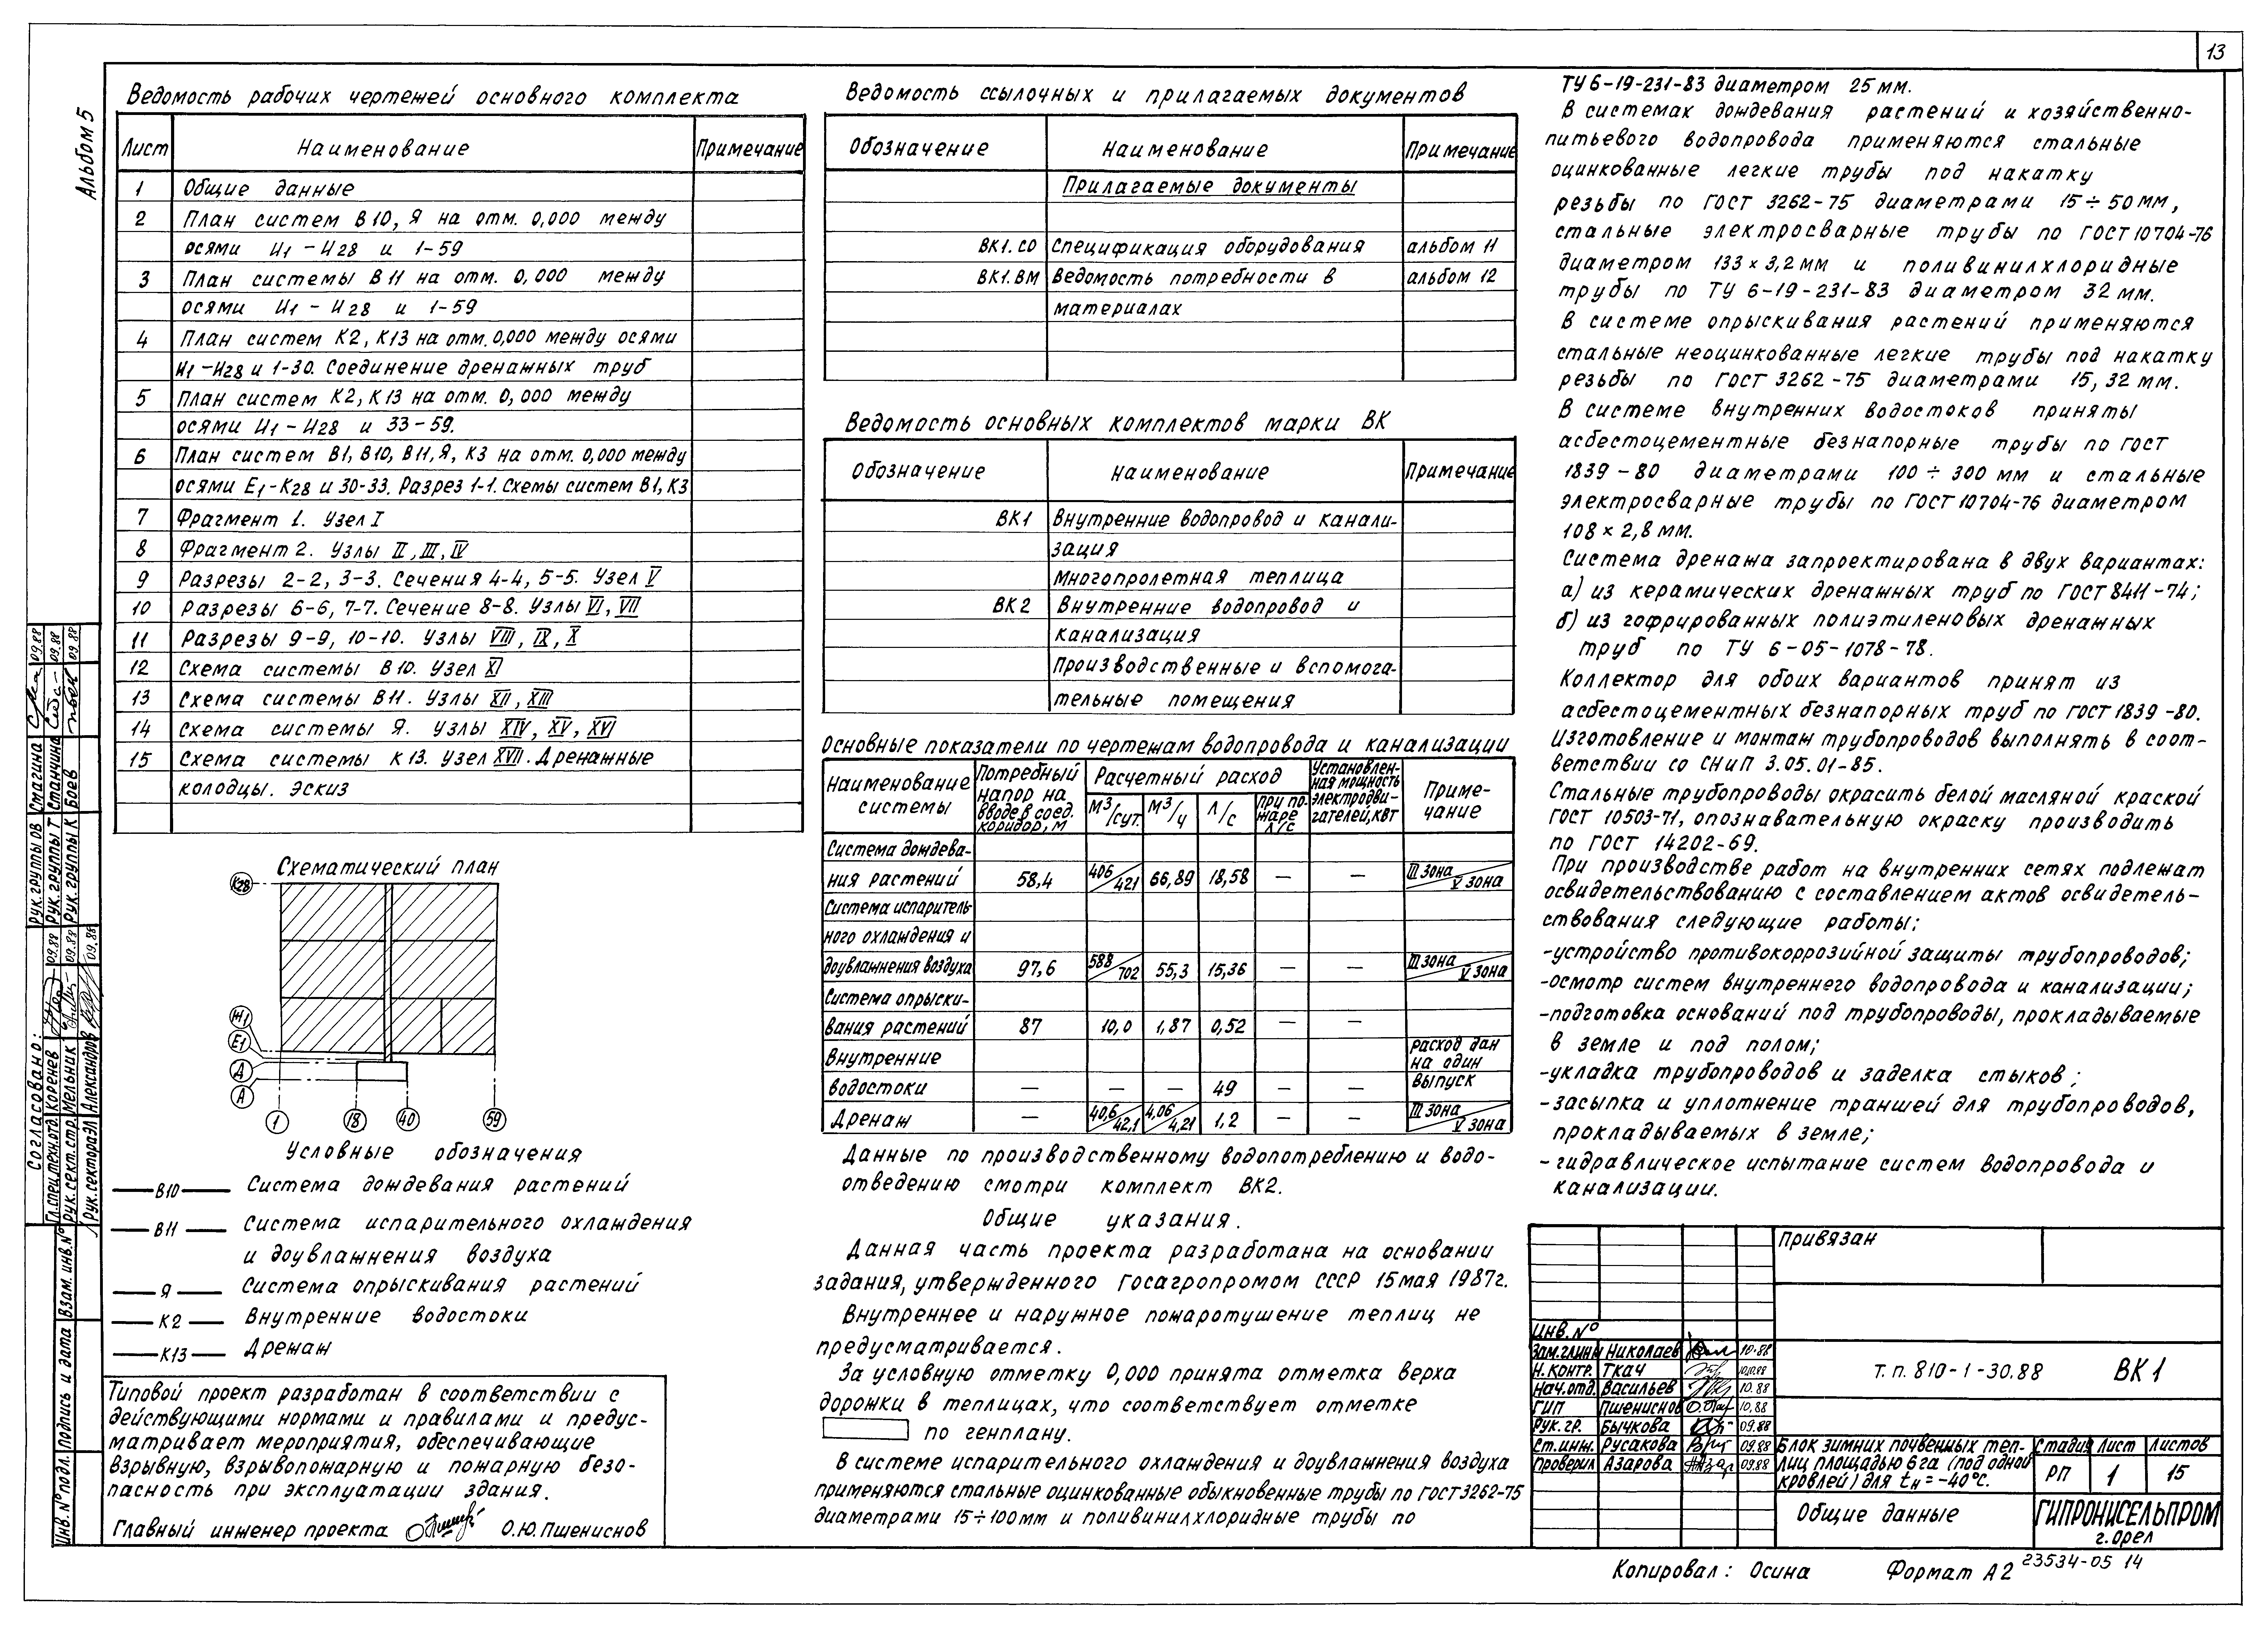 13
Альбом 5
Ведомость рабочих чертежей основного комплекта
Лист Наименование Примечание
1 Общие данные
2 План систем В10, Я на отм. 0,000 между
осями И1 – И28 и 1-59
3 План системы В11 на отм. 0,000 между
осями И1 – И28 и 1-59
4 План систем К2, К13 на отм. 0,000 между осями
И1 – И28 и 1-30. Соединение дренажных труб
5 План систем К2, К13 на отм. 0,000 между
осями И1 – И28 и 33-59.
6 План систем В1, В10, В11, Я, К3 на отм. 0,000 между
осями Е1-К28 и 30-33. Разрез 1-1. Схемы систем В1, К3
7 Фрагмент 1. Узел I
8 Фрагмент 2. Узлы II, III, IV
9 Разрезы 2-2, 3-3. Сечения 4-4, 5-5. Узел V
10 Разрезы 6-6, 7-7. Сечение 8-8. Узлы VI, VII
11 Разрезы 9-9, 10-10. Узлы VIII, IX, X
12 Схема системы В10. Узел XI
13 Схема системы В11. Узлы XII, XIII
14 Схема системы Я. Узлы XIV, XV, XVI
15 Схема системы К13. Узел XVII. Дренажные
колодцы. Эскиз
Схематический план
К28
Ж1
Е1
Д
А
1 18 40 59
Условные обозначения
В10 Система дождевания растений
В11 Система испарительного охлаждения
и доувлажнения воздуха
Я Система опрыскивания растений
К2 Внутренние водостоки
К13 Дренаж
Типовой проект разработан в соответствии с
действующими нормами и правилами и предус-
матривает мероприятия, обеспечивающие
взрывную, взрывопожарную и пожарную безо-
пасность при эксплуатации здания.
Главный инженер проекта О.Ю.Пшениснов
Ведомость ссылочных и прилагаемых документов
Обозначение Наименование Примечание
Прилагаемые документы
ВК1.СО Спецификация оборудования альбом 11
ВК1.ВМ Ведомость потребности в альбом 12
материалах
Ведомость основных комплектов марки ВК
Обозначение Наименование Примечание
ВК1 Внутренние водопровод и канали-
зация
Многопролетная теплица
ВК2 Внутренние водопровод и
канализация
Производственные и вспомога-
тельные помещения
Основные показатели по чертежам водопровода и канализации
Наименование системы Потребный напор на вводе в соед. коридор, м Расчетный расход Установлен-ная мощность электродви-гателей, кВт Приме-чание
м3/сут. м3/ч л/с При по-жаре л/с
Система дождева-
ния растений 58,4 406/421 66,89 18,58 – – III зона/V зона
Система испаритель-
ного охлаждения и
доувлажнения воздуха 97,6 588/702 55,3 15,36 – – III зона/V зона
Система опрыски-
вания растений 87 10,0 1,87 0,52 – –
Внутренние расход дан на один
водостоки – – – 49 – – выпуск
Дренаж – 40,6/42,1 4,06/4,21 1,2 – – III зона/V зона
Данные по производственному водопотреблению и водо-
отведению смотри комплект ВК2.
Общие указания.
Данная часть проекта разработана на основании
задания, утвержденного Госагропромом СССР 15 мая 1987г.
Внутреннее и наружное пожаротушение теплиц не
предусматривается.
За условную отметку 0,000 принята отметка верха
дорожки в теплицах, что соответствует отметке
по генплану.
В системе испарительного охлаждения и доувлажнения воздуха
применяются стальные оцинкованные обыкновенные трубы по ГОСТ 3262-75
диаметрами 15÷100мм и поливинилхлоридные трубы по
ТУ 6-19-231-83 диаметром 25 мм.
В системах дождевания растений и хозяйственно-
питьевого водопровода применяются стальные
оцинкованные легкие трубы под накатку
резьбы по ГОСТ 3262-75 диаметрами 15÷50 мм,
стальные электросварные трубы по ГОСТ 10704-76
диаметром 133×3,2 мм и поливинилхлоридные
трубы по ТУ 6-19-231-83 диаметром 32 мм.
В системе опрыскивания растений применяются
стальные неоцинкованные легкие трубы под накатку
резьбы по ГОСТ 3262-75 диаметрами 15, 32 мм.
В системе внутренних водостоков приняты
асбестоцементные безнапорные трубы по ГОСТ
1839-80 диаметрами 100÷300 мм и стальные
электросварные трубы по ГОСТ 10704-76 диаметром
108×2,8 мм.
Система дренажа запроектирована в двух вариантах:
а) из керамических дренажных труб по ГОСТ 8411-74;
б) из гофрированных полиэтиленовых дренажных
труб по ТУ 6-05-1078-78.
Коллектор для обоих вариантов принят из
асбестоцементных безнапорных труб по ГОСТ 1839-80.
Изготовление и монтаж трубопроводов выполнять в соот-
ветствии со СНиП 3.05.01-85.
Стальные трубопроводы окрасить белой масляной краской
ГОСТ 10503-71, опознавательную окраску производить
по ГОСТ 14202-69.
При производстве работ на внутренних сетях подлежат
освидетельствованию с составлением актов освидетель-
ствования следующие работы:
-устройство противокоррозийной защиты трубопроводов;
-осмотр систем внутреннего водопровода и канализации;
-подготовка оснований под трубопроводы, прокладываемые
в земле и под полом;
-укладка трубопроводов и заделка стыков;
-засыпка и уплотнение траншей для трубопроводов,
прокладываемых в земле;
-гидравлическое испытание систем водопровода и
канализации.
Привязан
Инв. №
Зам.гл.инж Николаев 10.88
Н.контр. Ткач 10.10.88
Нач.отд. Васильев 10.88
ГИП Пшениснов 10.88
Рук.гр. Бычкова 09.88
Ст.инж. Русакова 09.88
Проверил Азарова 09.88
Т.п. 810-1-30.88 ВК1
Блок зимних почвенных теп-
лиц площадью 6 га (под одной
кровлей) для tн = -40°С.
Стадия Лист Листов
РП 1 15
Общие данные
ГИПРОНИСЕЛЬПРОМ
г. Орел
Копировал: Осина Формат А2
23534-05 14
Согласовано:
Рук.группы ОВ Смагина 09.88
Рук.группы Т Станчина 09.88
Рук.группы К Боев 09.88
Гл.спец.техн.отд. Коренев 09.88
Рук.сект.стр. Мельник 09.88
Рук.сектора ЭЛ Александров 09.88
Инв.№ подл. Подпись и дата Взам. инв.№